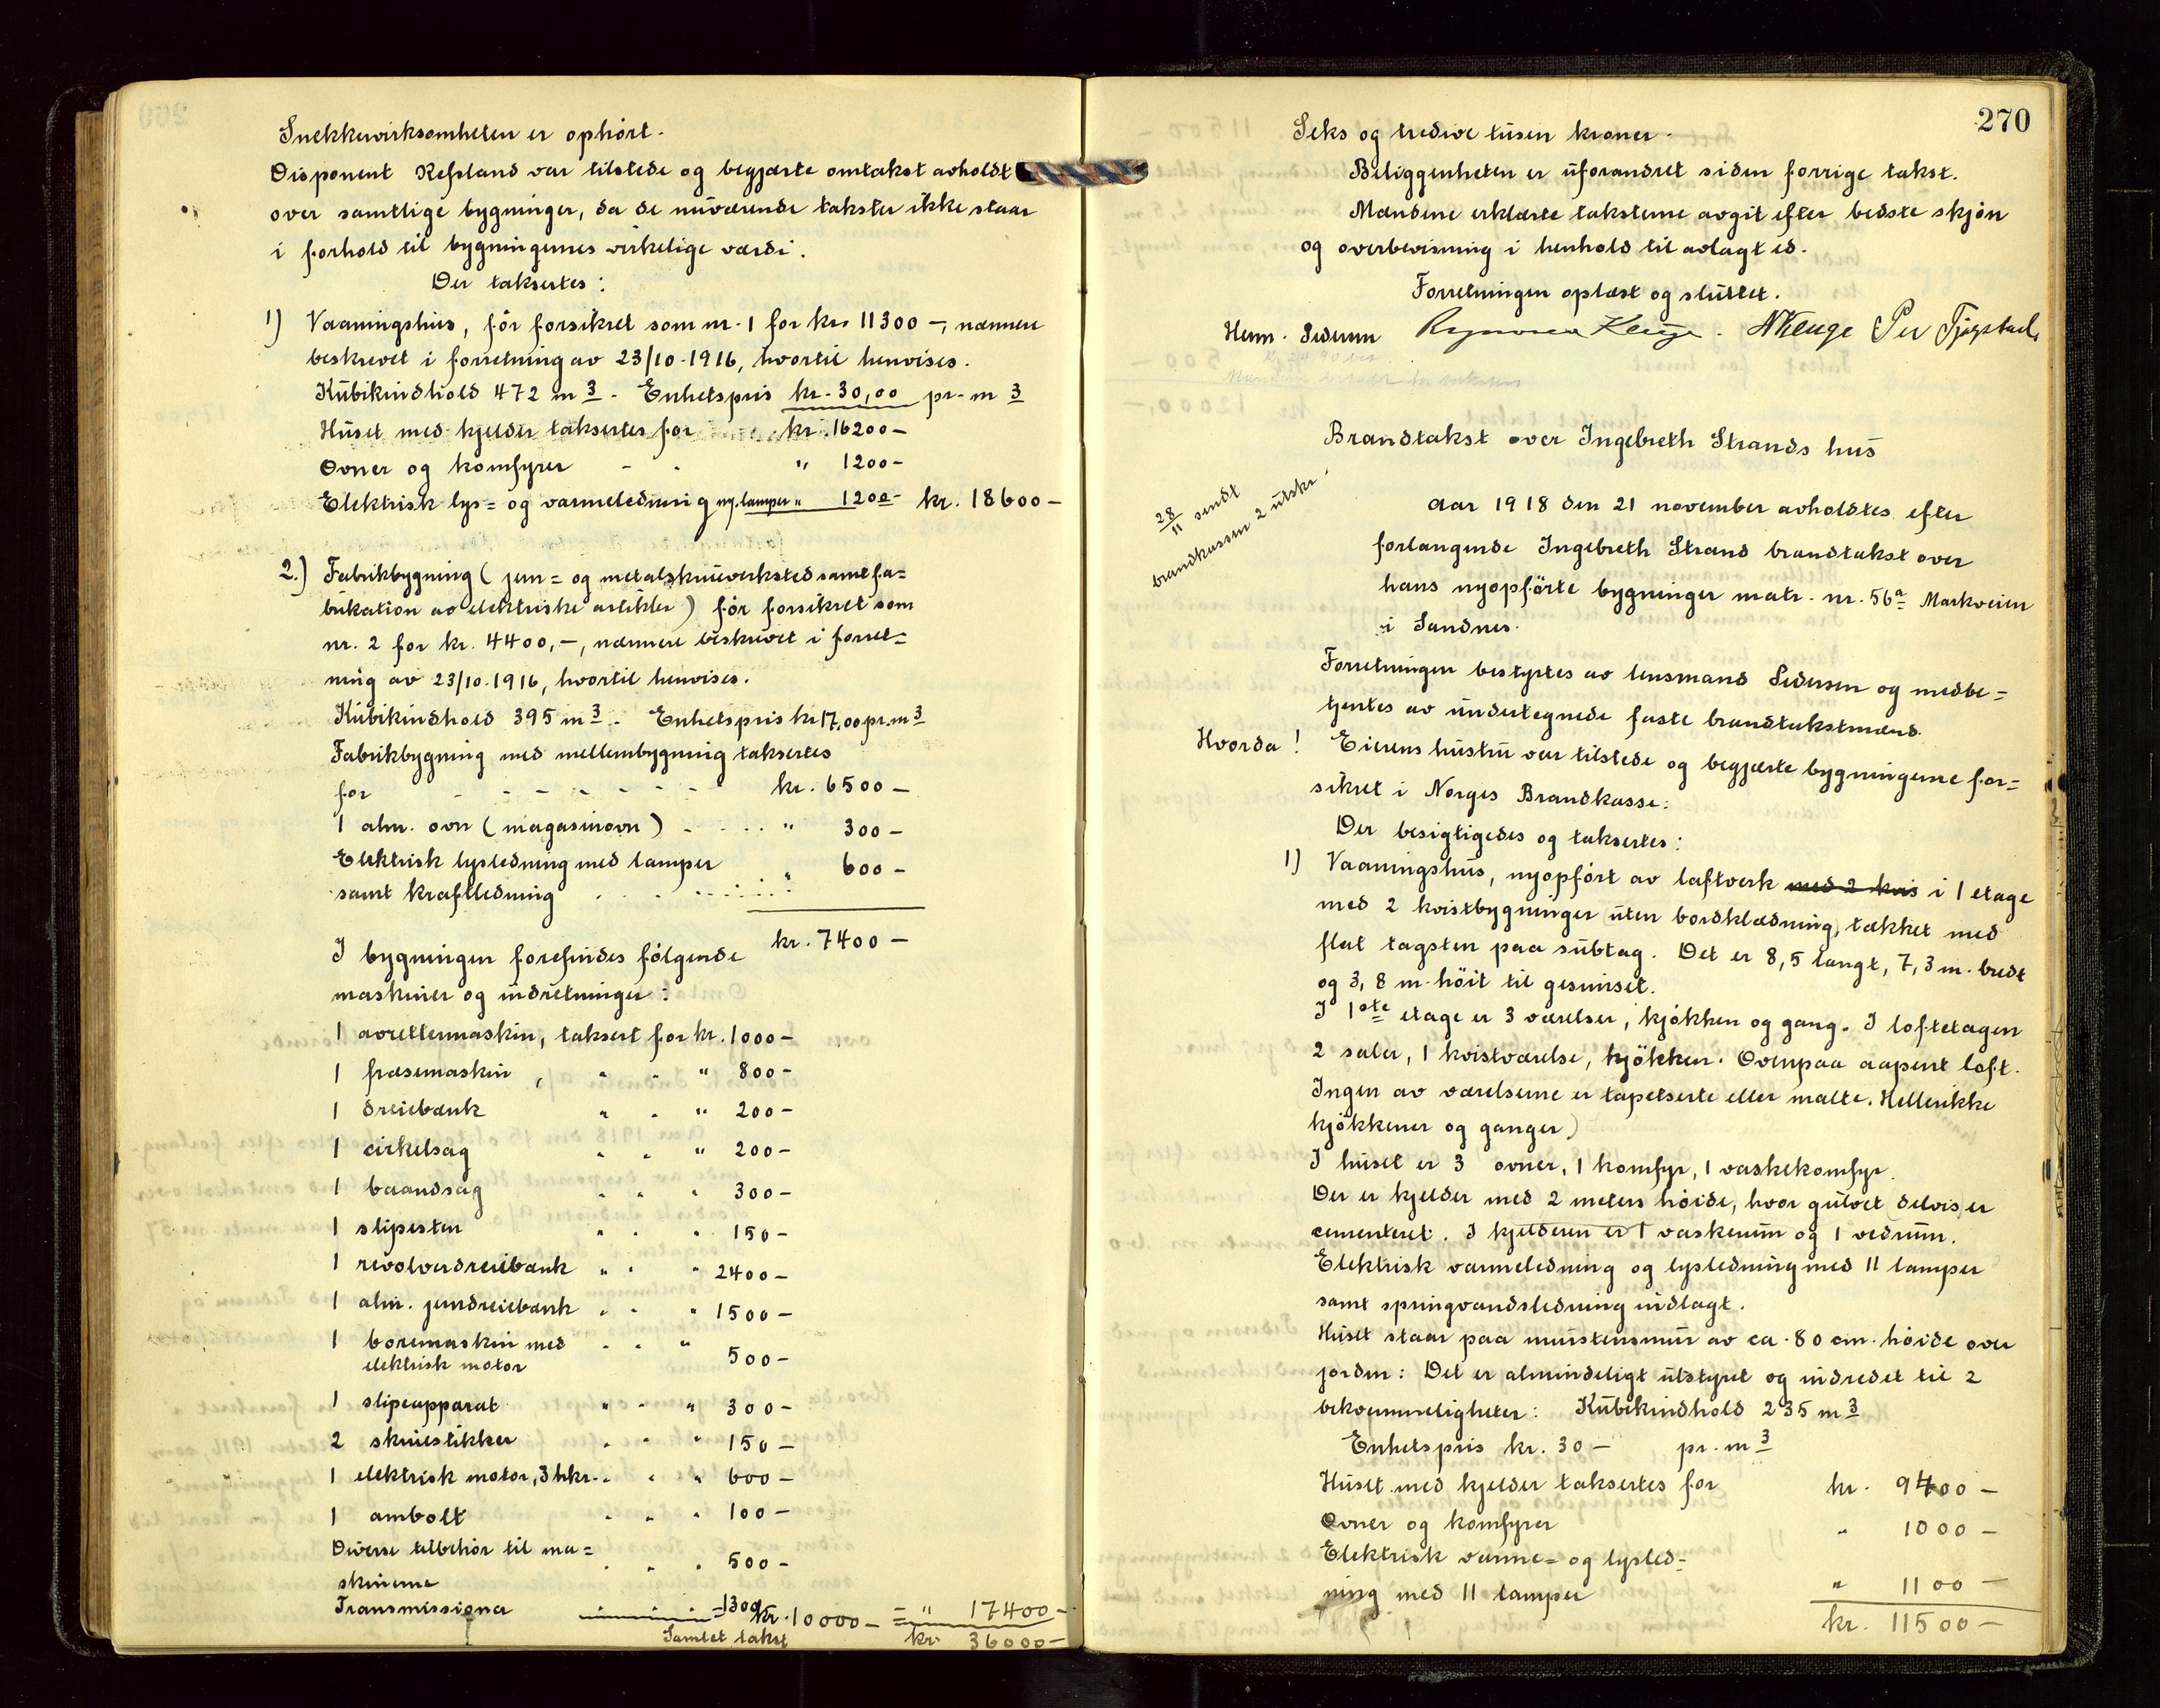 Snekkervirksomheten er ophørt.
Disponent Refsland var tilstede og begjærte omtakst avholdt
over samtlige bygninger, da de nuværende takster ikke staar
i forhold til bygningernes virkelige værdi.
Der taksertes:
1) Vaaningshus, før forsikret som nr. 1 for kr. 11300 –, nærmere
beskrevet i forretning av 23/10-1916, hvortil henvises.
Kubikindhold 472 m 3 - Enhetspris kr. 30,00 pr. m 3
Huset med kjelder taksertes for kr. 16200 –
Ovner og komfyrer - - " 1200 –
Elektrisk lys= og varmeledning og lamper " 1200 – kr. 18600 –
2.) Fabrikbygning ( jern = og metalskrueverksted samt fa=
brikation av elektriske artikler ) før forsikret som
nr. 2 for kr. 4400, –, nærmere beskrevet i forret=
ning av 23/10.1916, hvortil henvises.
Kubikindhold 395 m 3 - Enhetspris kr 17,00 pr. m 3
Fabrikbygning med mellembygning taksertes
for - - - - - - - kr. 6500 –
1 alm. ovn ( magasinovn ) - . . . " 300 –
Elektrisk lysledning med lamper
samt kraftledning . . . . . " 600 –
kr. 7400 –
I bygningen forefindes følgende
maskiner og indretninger:
1 avrettermaskin, taksert for kr. 1000 –
1 fræsemaskin, " " " 800 –
1 dreiebænk " " " 200 –
1 cirkelsag " " " 200 –
1 baandsag " " " 300 –
1 slipesten " " " 150 –
1 revolverdreiebænk " " " 2400 –
1 alm. jerndreiebænk " " " 1500 –
1 boremaskin med " " "
elektrisk motor 500 –
1 slipeapparat " " " 300 –
2 skruestikker " " " 150 –
1 elektrisk motor, 3 hkr. " " " 600 –
1 ambolt " " " 100 –
Diverse tilbehør til ma=
skinerne " " " 500 –
Transmissioner 1300 kr. 10000 – = " 17400 –
Samlet takst kr. 36000 –
270
Seks og tredive tusen kroner.
Beliggenheten er uforandret siden forrige takst.
Mændene erklærte taksterne avgit efter bedste skjøn
og overbevisning i henhold til avlagt ed.
Forretningen oplæst og sluttet.
Herm. Pedersen Kenge. Kenge Per Tjøgstad
Brandtakst over Ingebreth Strands hus
28/11 sendt
brandkassen 2 utskr
Aar 1918 den 21 november avholdtes efter
forlangende Ingebreth Strand brandtakst over
hans nyopførte bygninger matr. nr. 56 a Markveien
i Sandnes.
Forretningen bestyrtes av lensmand Pedersen og medbe=
tjentes av undertegnede faste brandtakstmænd.
Hvorda! Eierens hustru var tilstede og begjærte bygningerne for=
sikret i Norges Brandkasse:
Der besigtigedes og taksertes:
1) Vaaningshus, nyopført av laftverk med 2 kvis i 1 etage
med 2 kvistbygninger (uten bordklædning), tækket med
flat tagsten paa subtag. Det er 8,5 langt, 7,3 m. bredt
og 3,8 m. høit til gesimset.
I 1ste etage er 3 værelser, kjøkken og gang. I loftetagen
2 saler, 1 kvistværelse, kjøkken. Ovenpaa aapent loft.
Ingen av værelserne er tapetserte eller malte. Heller ikke
kjøkkener og ganger)
I huset er 3 ovner, 1 komfyr, 1 vaskekomfyr.
Der er kjelder med 2 meters høide, hvor gulvet (delvis) er
cementeret. I kjelderen er 1 vaskerum og 1 vedrum.
Elektrisk varmeledning og lysledning med 11 lamper
samt springvandsledning indlagt.
Huset staar paa murstensmur av ca. 80 cm. høide over
jorden: Det er almindeligt utstyret og indredet til 2
bekvemmeligheter: Kubikindhold 235 m 3
Enhetspris kr. 30 – pr. m 3
Huset med kjelder taksertes for kr. 9400 –
Ovner og komfyrer " 1000 –
Elektrisk varme= og lysled=
ning med 11 lamper " 1100 –
kr. 11500 –